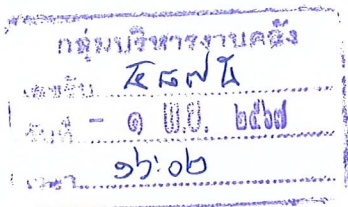 กลุ่มบริหารงานคลัง
เลขรับ
วันที่ - ๑ พ.ย. ๒๕๖๗
เวลา ๑๖:๐๒